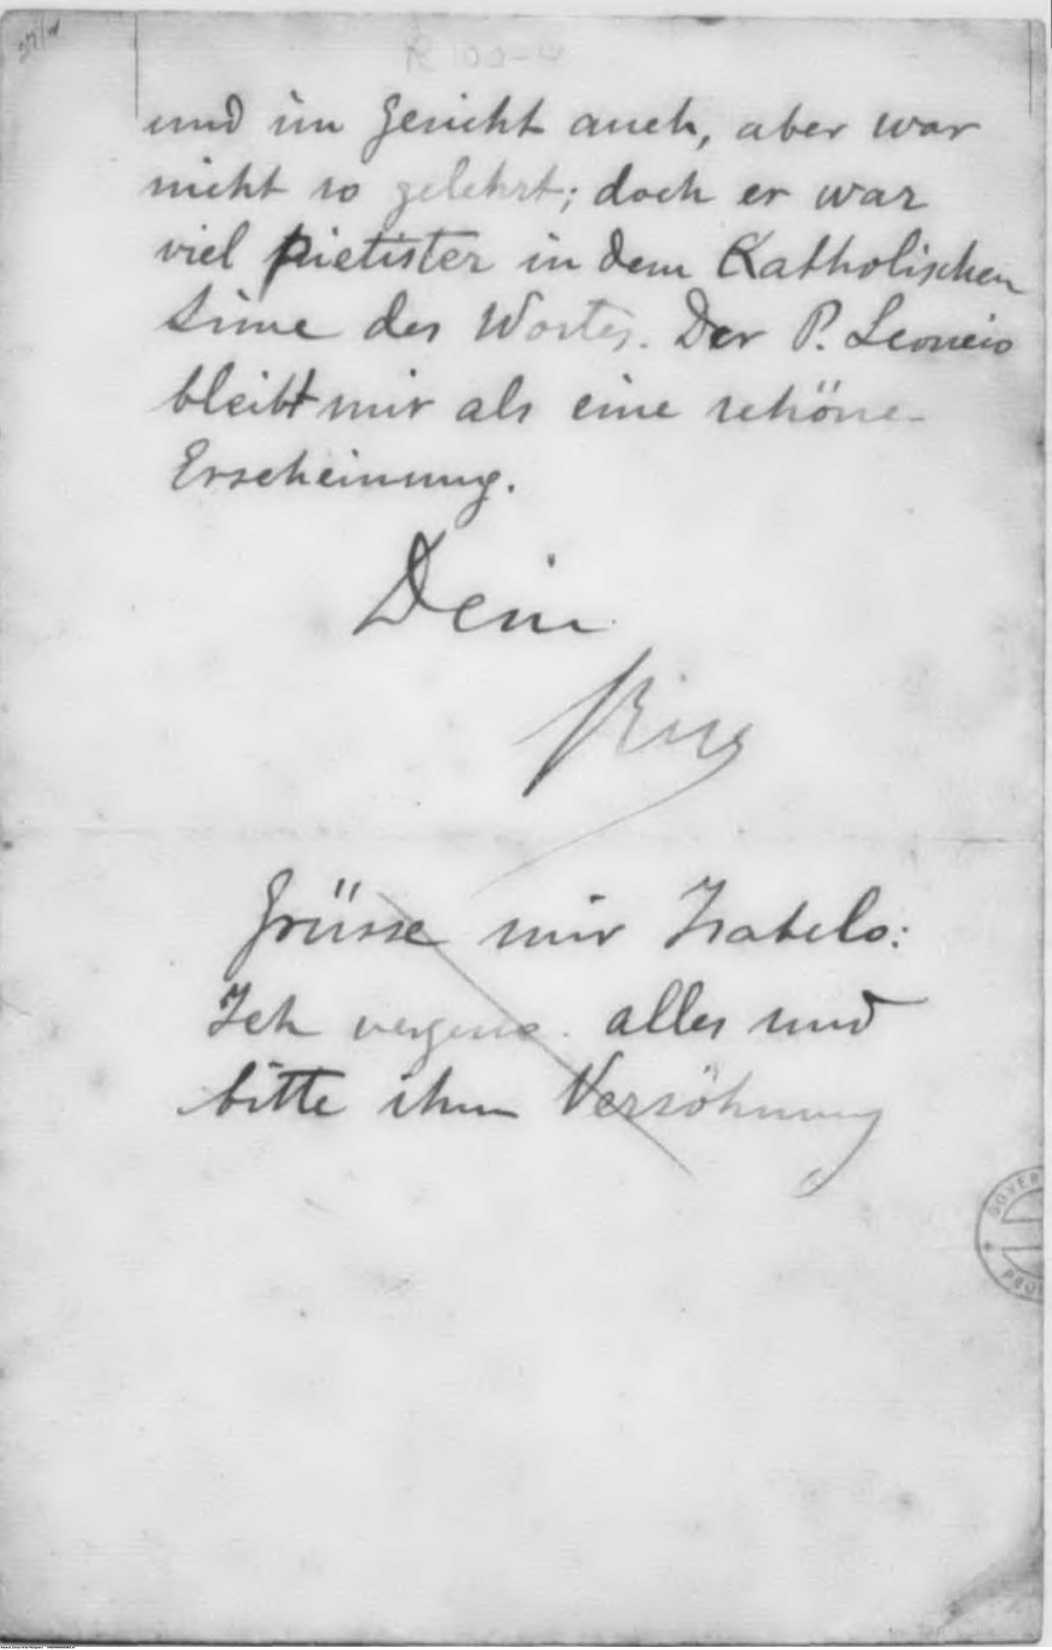 und im Gesicht auch, aber war
nicht so gelehrt; doch er war
viel pietister in dem Katholischen
Sinne des Wortes. Der P. Leoncio
bleibt mir als eine schöne
Erscheinung.
Dein
Grüsse mir Isabelo:
Ich vergess alles und
bitte ihm Versöhnung